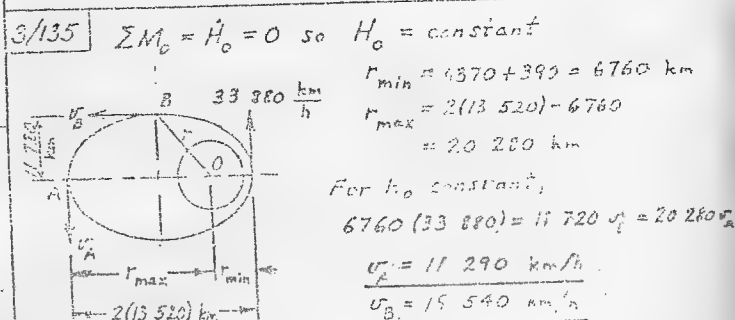 3/135 ΣM_o = Ḣ_o = 0 so H_o = constant
r_min = 6370 + 390 = 6760 km
r_max = 2(13 520) - 6760
= 20 280 km
For h_o constant,
6760 (33 880) = 11 720 v_B = 20 280 v_A
v_A = 11 290 km/h
v_B = 19 540 km/h
33 880 km/h
B
v_B
r
O
km
A
v_A
r_max
r_min
2(13 520) km